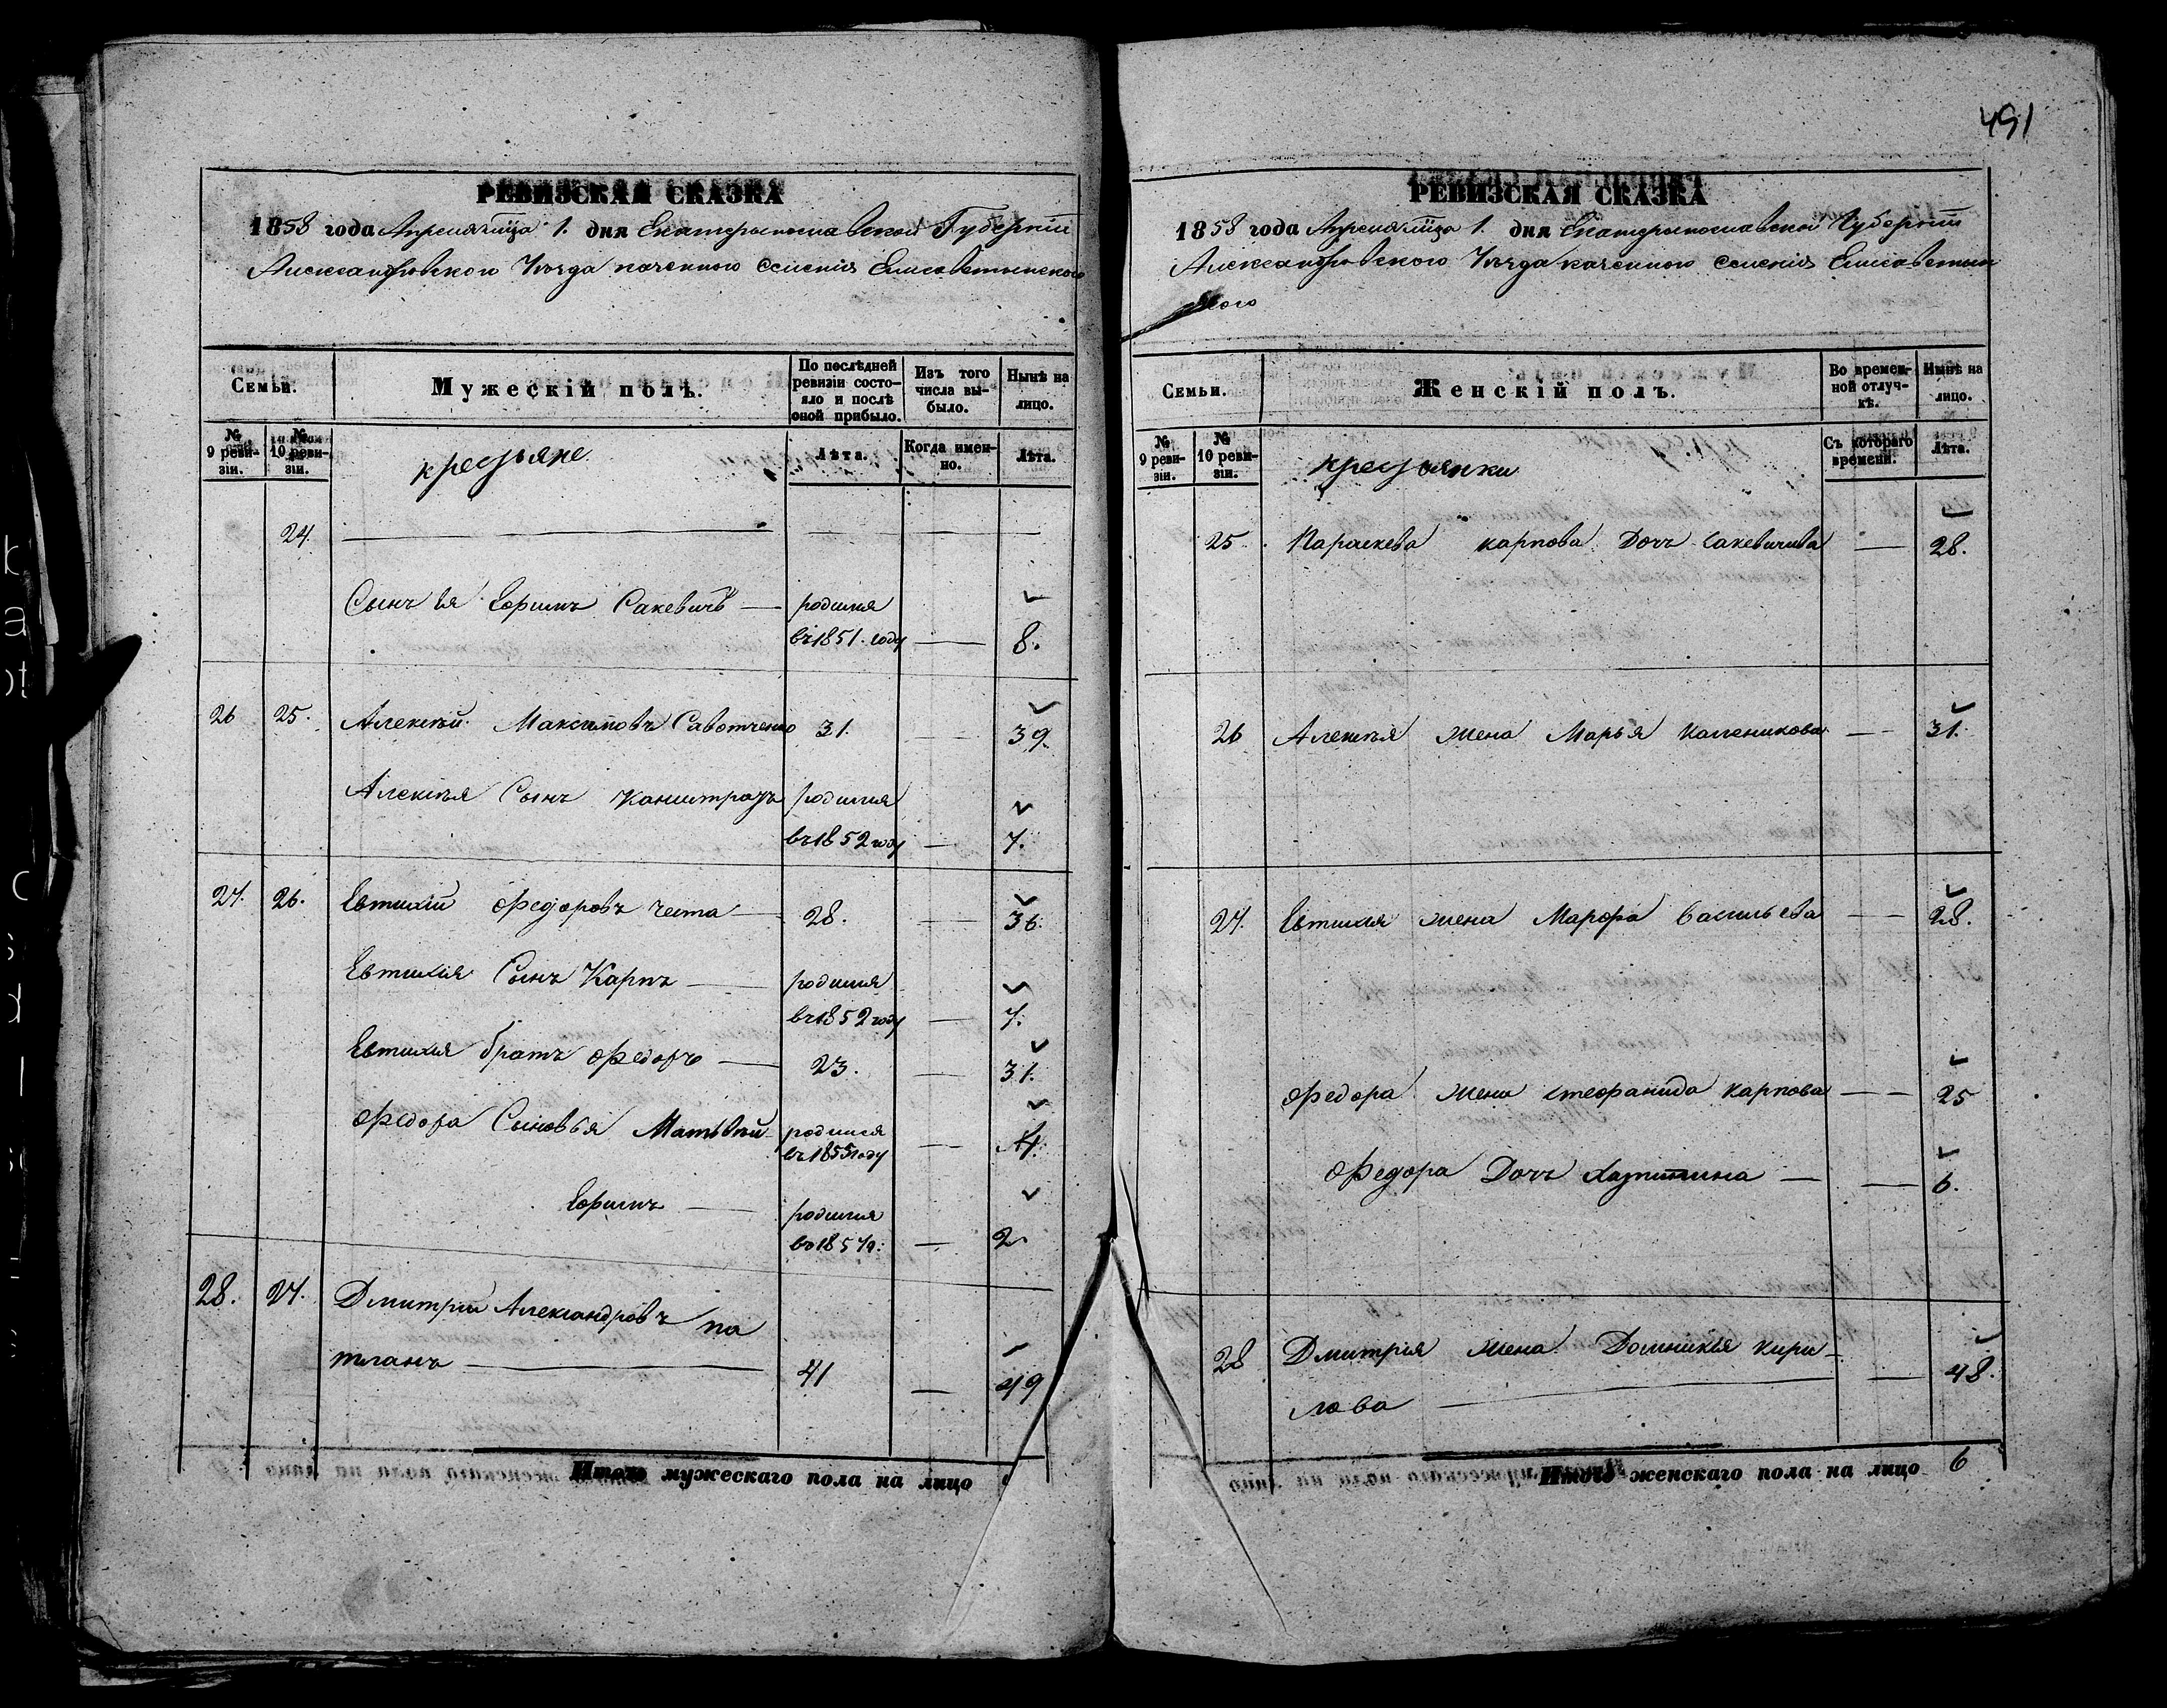 491
РЕВИЗСКАЯ СКАЗКА
1858 года Апреля мца 1. дня Екатеринославской Губерніи
Александровского Уезда казенного Селенія Елисаветинского
Семьи.
Мужескій полъ.
По послѣдней ревизіи состо-
яло и послѣ оной прибыло.
Изъ того числа вы-
было.
Нынѣ на лицо.
№ 9 реви-
зіи.
№ 10 реви-
зіи.
крестьяне
Лѣта.
Когда имен-
но.
Лѣта.
24.
Сынъ ея Ефимъ Сакевичъ — родился
въ 1851. году — 8.
26 25. Алексѣй Максимовъ Савотченко 31. — 39.
Алексѣя Сынъ Калистратъ родился
въ 1852 году — 7.
27. 26. Евтихій Федоровъ Чепа — 28. — 36.
Евтихія Сынъ Карпъ — родился
въ 1852 году — 7.
Евтихія братъ Федоръ — 23. — 31.
Федора Сыновья Матвѣй родился
въ 1855 году — 4.
Ефимъ — родился
въ 1857 г: — 2.
28. 27. Дмитрій Александровъ па
тланъ — 41 — 49
Итого мужескаго пола на лицо
РЕВИЗСКАЯ СКАЗКА
1858 года Апреля мца 1. дня Екатеринославской Губерніи
Александровского Уезда казенного Селенія Елисаветин
ского
Семьи.
Женскій полъ.
Во времен-
ной отлуч-
кѣ.
Нынѣ на лицо.
№ 9 реви-
зіи.
№ 10 реви-
зіи.
крестьянки
Съ котораго времени.
Лѣта.
25 Параскева Карпова Дочь Сакевичева — 28.
26 Алексѣя жена Марья Каленикова — 31.
27. Евтихія жена Марфа Васильева — 28.
Федора жена Стефанида Карпова — 25
Федора Дочь — 6.
28 Дмитрія жена Домникія Кири-
лова — 48.
Итого женскаго пола на лицо 6